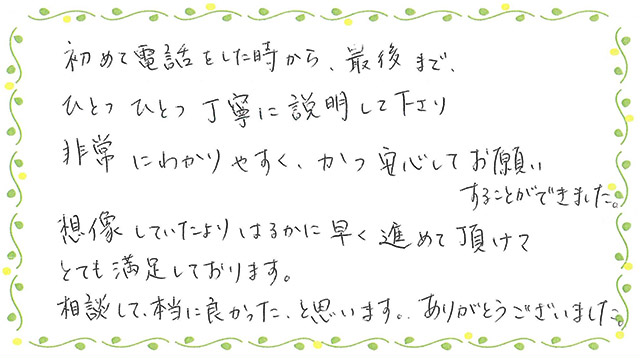 初めて電話をした時から、最後まで、
ひとつひとつ丁寧に説明して下さり
非常にわかりやすく、かつ安心してお願い
することができました。
想像していたよりはるかに早く進めて頂けて
とても満足しております。
相談して、本当に良かった、と思います。ありがとうございました。